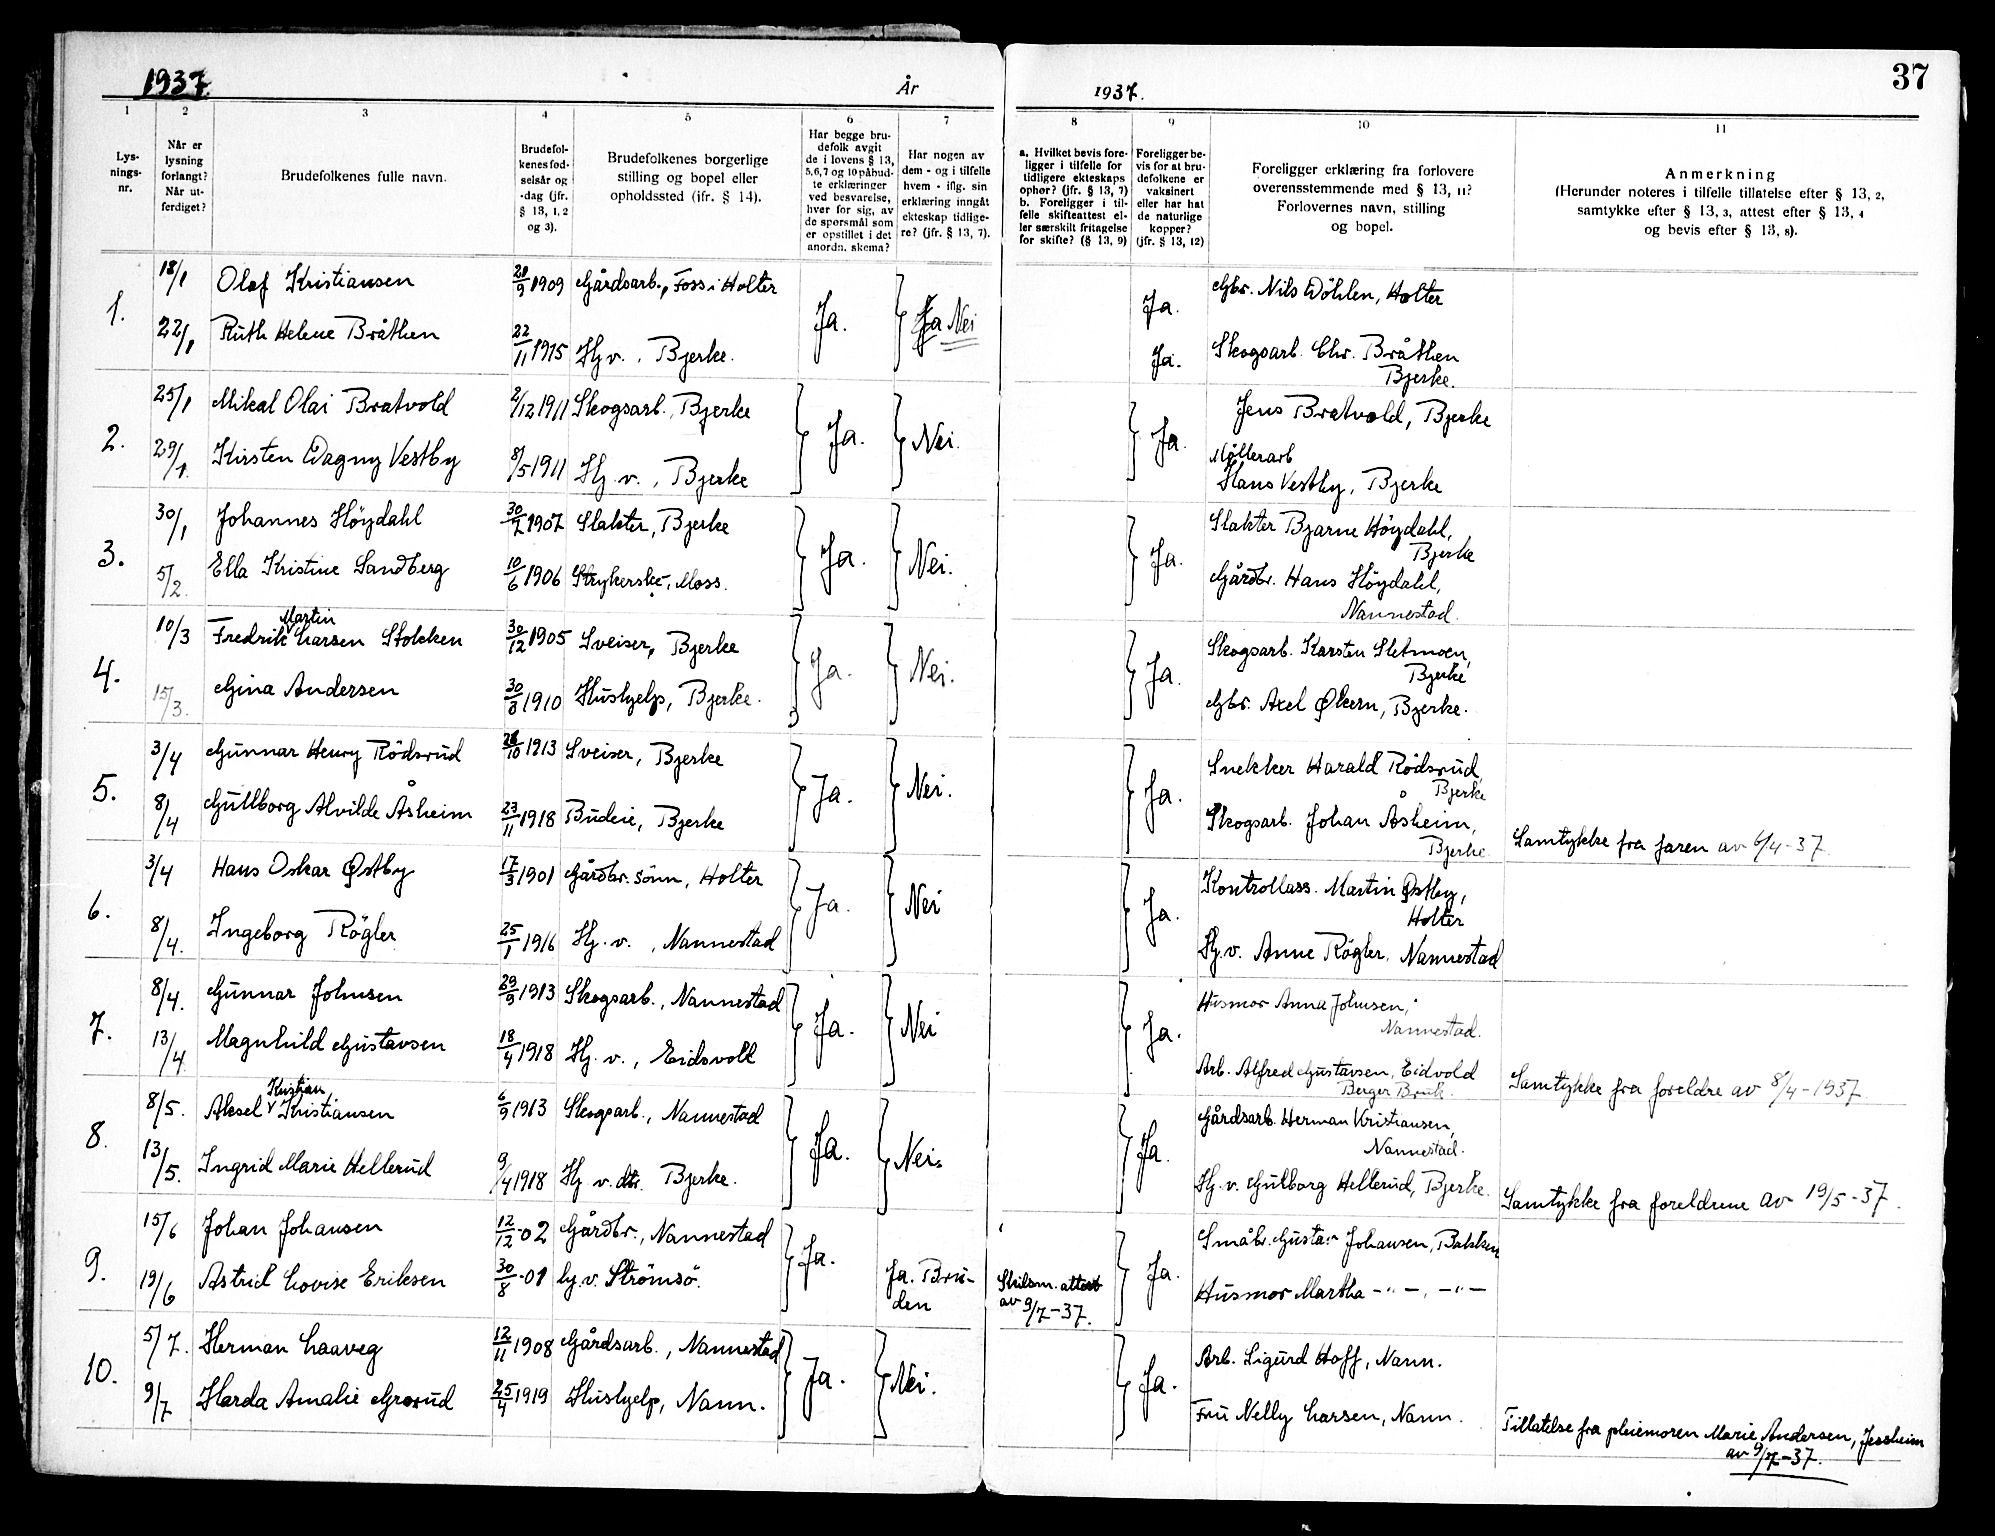 1937.
År
1937.
37
1
2
3
4
5
6
7
8
9
10
11
Lys-
nings-
nr.
Når er
lysning
forlangt?
Når ut-
ferdiget?
Brudefolkenes fulle navn.
Brudefol-
kenes fød-
selsår og
-dag (jfr.
§ 13, 1, 2
og 3).
Brudefolkenes borgerlige
stilling og bopel eller
opholdssted (jfr. § 14).
Har begge bru-
defolk avgit
de i lovens § 13,
5, 6, 7 og 10 påbud-
te erklæringer
ved besvarelse,
hver for sig, av
de spørsmål som
er opstillet i det
anordn. skema?
Har nogen av
dem - og i tilfelle
hvem - iflg. sin
erklæring inngåt
ekteskap tidlige-
re? (jfr. § 13, 7).
a. Hvilket bevis fore-
ligger i tilfelle for
tidligere ekteskaps
ophør? (jfr. § 13, 7)
b. Foreligger i til-
felle skifteattest el-
ler særskilt fritagelse
for skifte? (§ 13, 9)
Foreligger be-
vis for at bru-
defolkene er
vaksinert
eller har hat
de naturlige
kopper?
(jfr. § 13, 12)
Foreligger erklæring fra forlovere
overensstemmende med § 13, 11?
Forlovernes navn, stilling
og bopel.
Anmerkning
(Herunder noteres i tilfelle tillatelse efter § 13, 2,
samtykke efter § 13, 3, attest efter § 13, 4
og bevis efter § 13, 8).
1. 18/1 Olaf Kristiansen 21/9 1909 Gårdsarb., Foss i Holter Ja. Ja Nei Ja. Gbr. Nils Döhlen, Holter
22/1 Ruth Helene Bråthen 22/11 1915 Hj.v., Bjerke. Ja. Skogsarb. Chr. Bråthen
Bjerke.
2. 25/1 Mikal Olai Bratvold 2/12 1911 Skogsarb., Bjerke Ja. Nei. Ja. Jens Bratvold, Bjerke
Möllerarb
29/1. Kirsten Dagny Vestby 8/5 1911 Hj.v., Bjerke Hans Vestby, Bjerke
3. 30/1 Johannes Höydahl 30/7 1907 Slakter, Bjerke Ja. Nei. Ja. Slakter Bjarne Höydahl,
Bjerke
5/2. Ella Kristine Sandberg 10/6 1906 Strykerske, Moss. Gårdbr. Hans Höydahl,
Nannestad.
Martin
4. 10/3 Fredrik Larsen Stokken 30/12 1905 Sveiser, Bjerke Ja. Nei. Ja. Skogsarb. Karsten Sletmoen,
Bjerke
15/3. Gina Andersen 30/8 1910 Hushjelp, Bjerke. Gbr. Axel Økern, Bjerke.
5. 3/4 Gunnar Henry Rödsrud 28/10 1913 Sveiser, Bjerke Ja. Nei. Ja. Snekker Harald Rödsrud,
Bjerke
8/4 Gullborg Alvilde Åsheim 23/11 1918 Budeie, Bjerke Skogsarb. Johan Åsheim,
Bjerke Samtykke fra faren av 6/4-37.
6. 3/4 Hans Oskar Østby 17/3 1901 Gårdbr. sönn, Holter Ja. Nei Ja. Kontrollass. Martin Østby,
Holter
8/4. Ingeborg Rögler 25/1 1916 Hj.v., Nannestad Hj.v. Anne Rögler, Nannestad
7. 8/4. Gunnar Johnsen 29/9 1913 Skogsarb., Nannestad Ja. Nei Ja. Husmor Anna Johnsen,
Nannestad.
13/4. Magnhild Gustavsen 18/4 1918 Hj.v., Eidsvoll Arb. Alfred Gustavsen, Eidvold
Berger Bruk. Samtykke fra foreldre av 8/4-1937
Kristian
8. 8/5. Aksel Kristiansen 6/9 1913 Skogsarb., Nannestad Ja. Nei. Ja. Gårdsarb. Herman Kristiansen,
Nannestad.
13/5. Ingrid Marie Hellerud 9/4 1918 Hj.v. dtr. Bjerke. Hj.v. Gulborg Hellerud, Bjerke. Samtykke fra foreldrene av 19/5-37.
9. 15/6 Johan Johansen 12/12-02 Gårdbr., Nannestad Ja. Ja. Småbr. Gustav Johansen, Bakken
19/6 Astrid Lovise Eriksen 30/8-01 hj.v. Strömsö. Ja. Bru-
den Skilsm. attest
av 9/7-37. Husmor Martha -"-, -"-
10. 5/7. Herman Laaveg 12/11 1908 Gårdsarb., Nannestad Ja. Nei. Ja. Arb. Sigurd Hoff, Nann.
9/7 Harda Amalie Grorud 25/4 1919 Hushjelp, Nann. Fru Nelly Larsen, Nann. Tillatelse fra pleiemoren Marie Andersen, Jessheim
av 9/7-37.